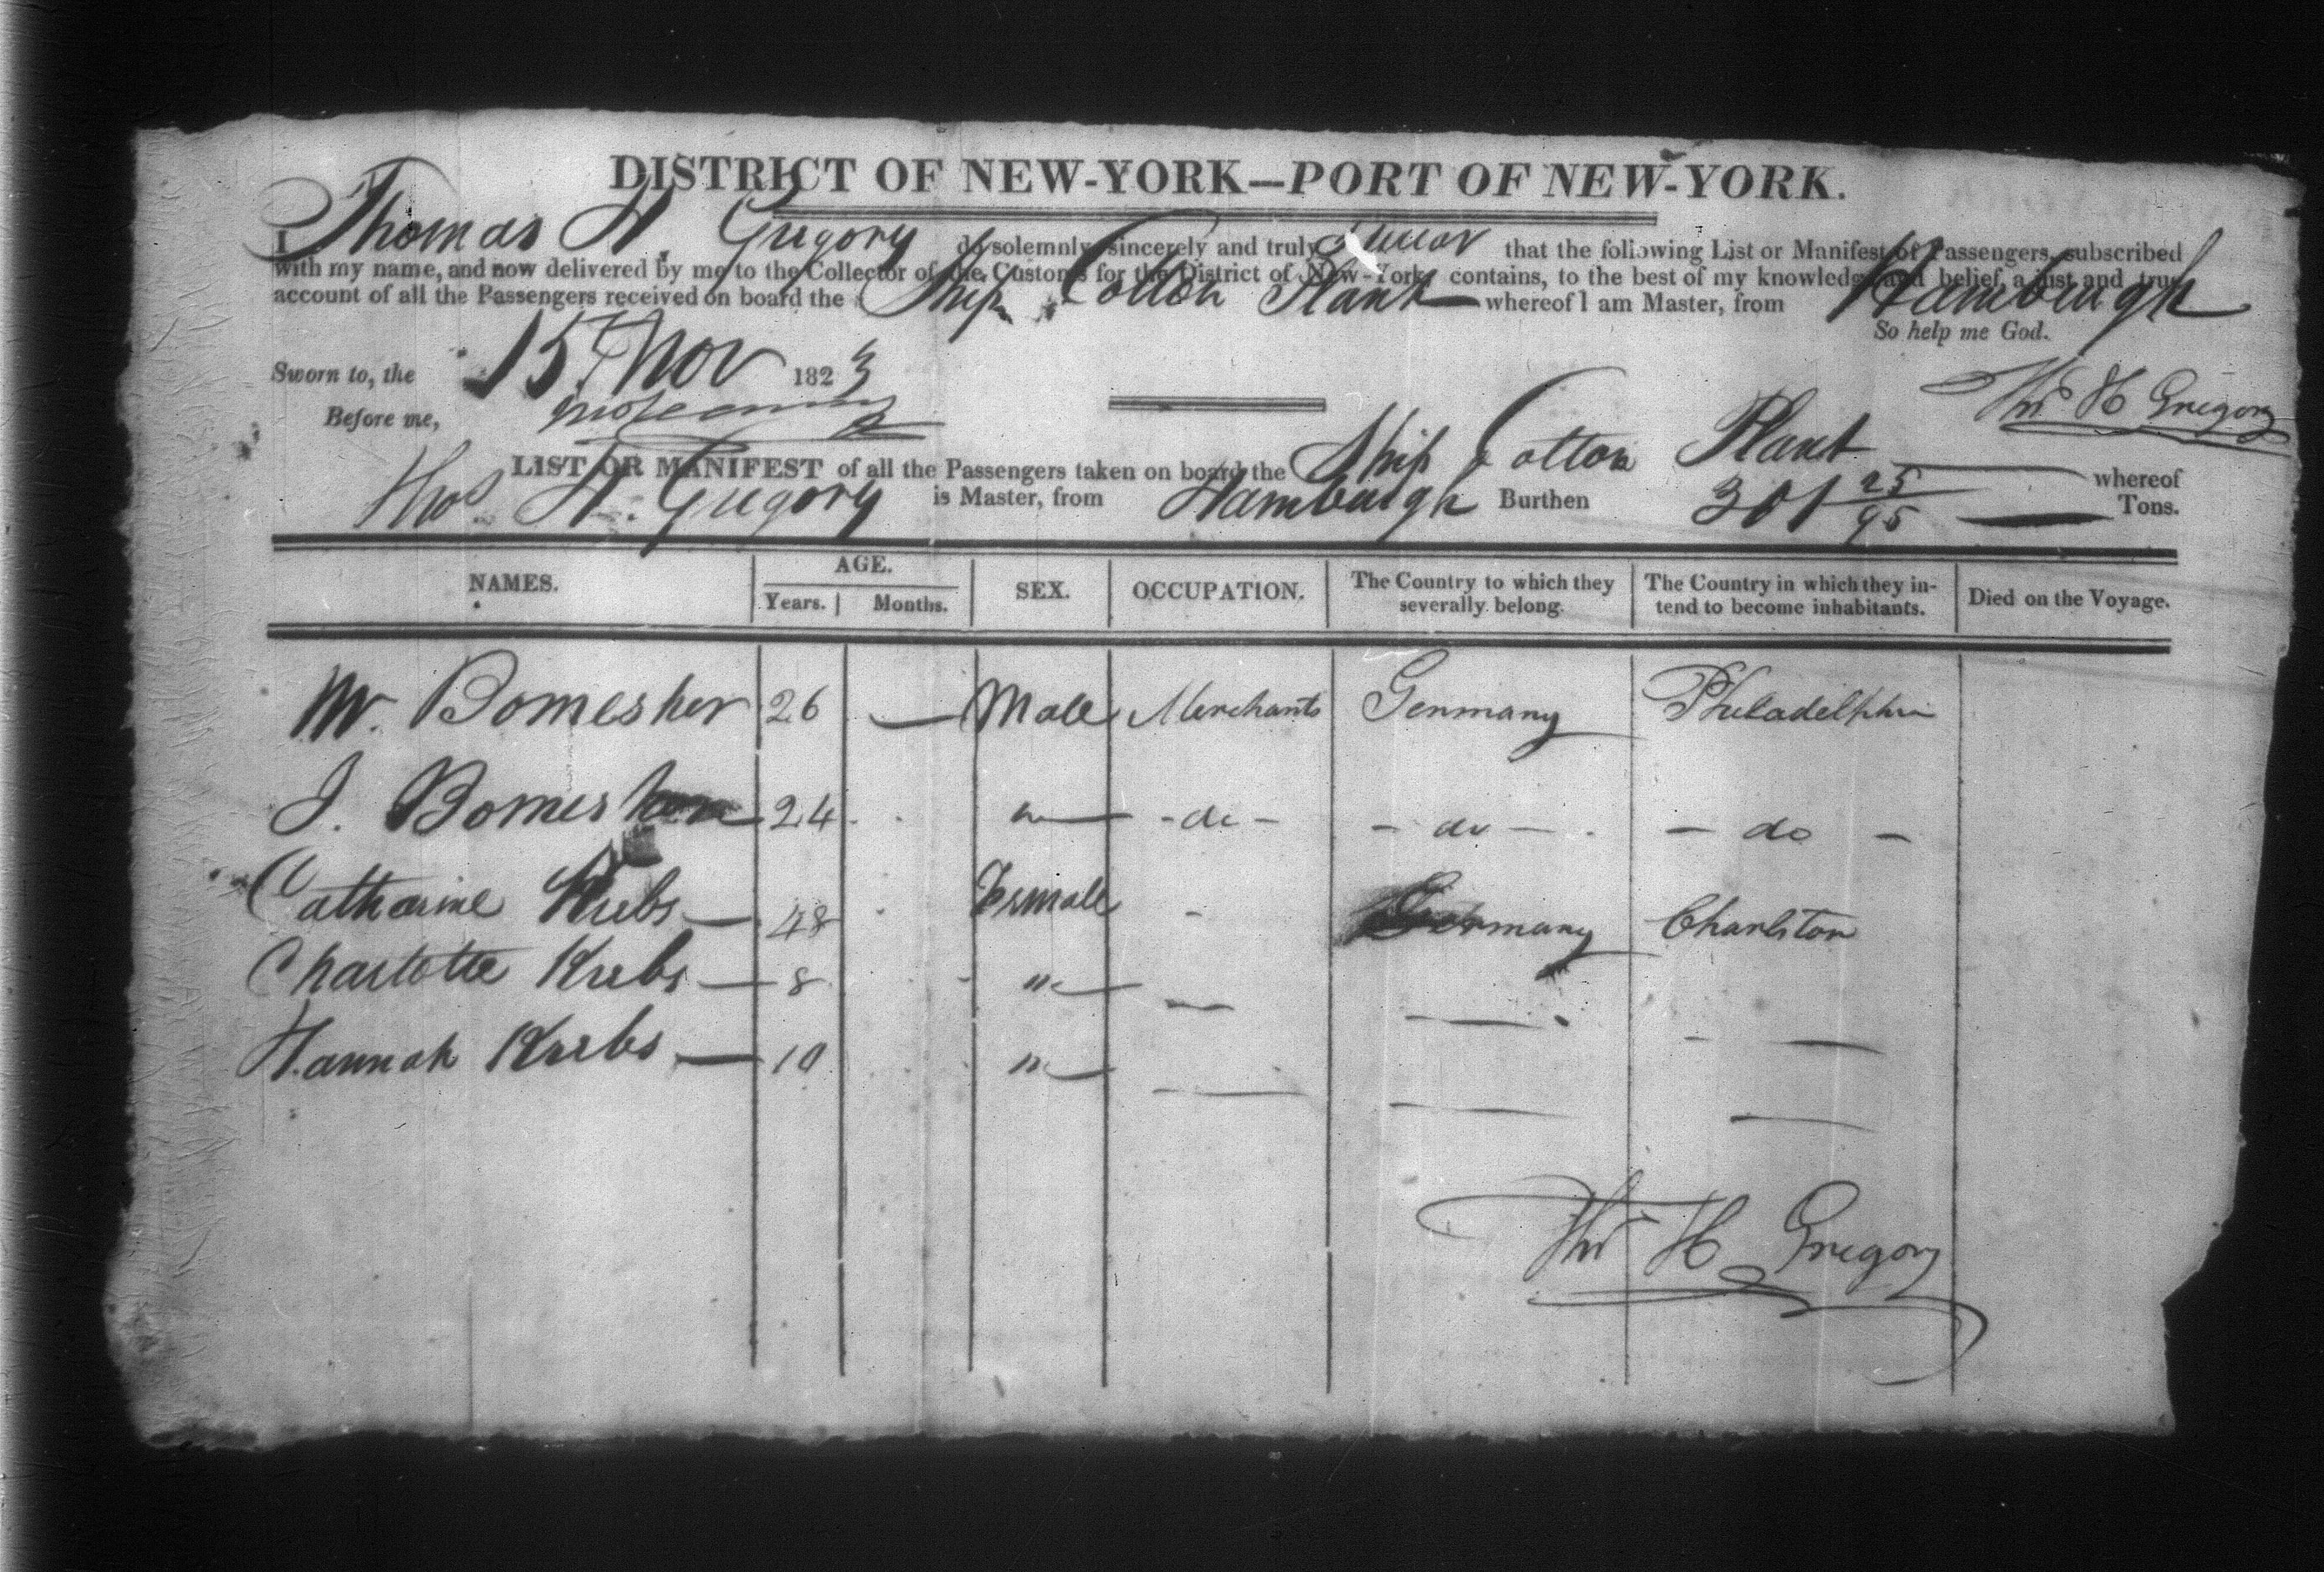 DISTRICT OF NEW-YORK—PORT OF NEW-YORK.
I Thomas H. Gregory do solemnly, sincerely and truly swear that the following List or Manifest of Passengers, subscribed
with my name, and now delivered by me to the Collector of the Customs for the District of New-York, contains, to the best of my knowledge and belief, a just and true
account of all the Passengers received on board the Ship Cotton Plant whereof I am Master, from Hamburgh
So help me God.
Sworn to, the 15 Nov 1823
Thos H Gregory
Before me,
LIST OR MANIFEST of all the Passengers taken on board the Ship Cotton Plant whereof
Thos H. Gregory is Master, from Hamburgh Burthen 301 25/95 Tons.
NAMES. AGE. Years. Months. SEX. OCCUPATION. The Country to which they severally belong. The Country in which they intend to become inhabitants. Died on the Voyage.
M. Bomesher 26 — Male Merchants Germany Philadelphia
J. Bomesher 24 " — - do - - do — — do —
Catharine Krebs — 48 Female - Germany Charlston
Charlotte Krebs — 8 " — — — —
Hannah Krebs — 10 " — — — —
Thos H Gregory